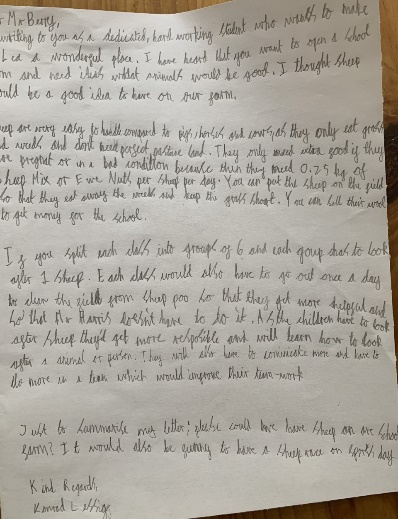 Mr Berry,
writing to you as a dedicated, hard working student who wants to make
a wonderful place. I have heard that you want to open a school
and need ideas what animals would be good. I thought sheep
would be a good idea to have on our farm.
are very easy to handle compared to pigs, horses and cows, as they only eat grass
and weeds and dont need perfect pasture land. They only need extra good if they
are pregnat or in a bad condition because then they need 0.25 kg of
Sheep Mix or Ewe Nuts per sheep per day. You can put the sheep on the field
so that they eat away the weeds and keep the grass short. You can sell their wool
to get money for the school.
If you split each class into groups of 6 and each group has to look
after 1 sheep. Each class would also have to go out once a day
to clean the field from sheep poo so that they get more helpful and
so that Mr Harris doesn't have to do it. As the children have to look
after sheep they'd get more resposible and will learn how to look
after a animal or person. They will also have to comunicate more and have to
do more in a team which would improve their team-work
Just to summarise my letter; please could we have sheep on are school
farm? It would also be funny to have a sheep race on sports day
Kind Regards,
Konrad